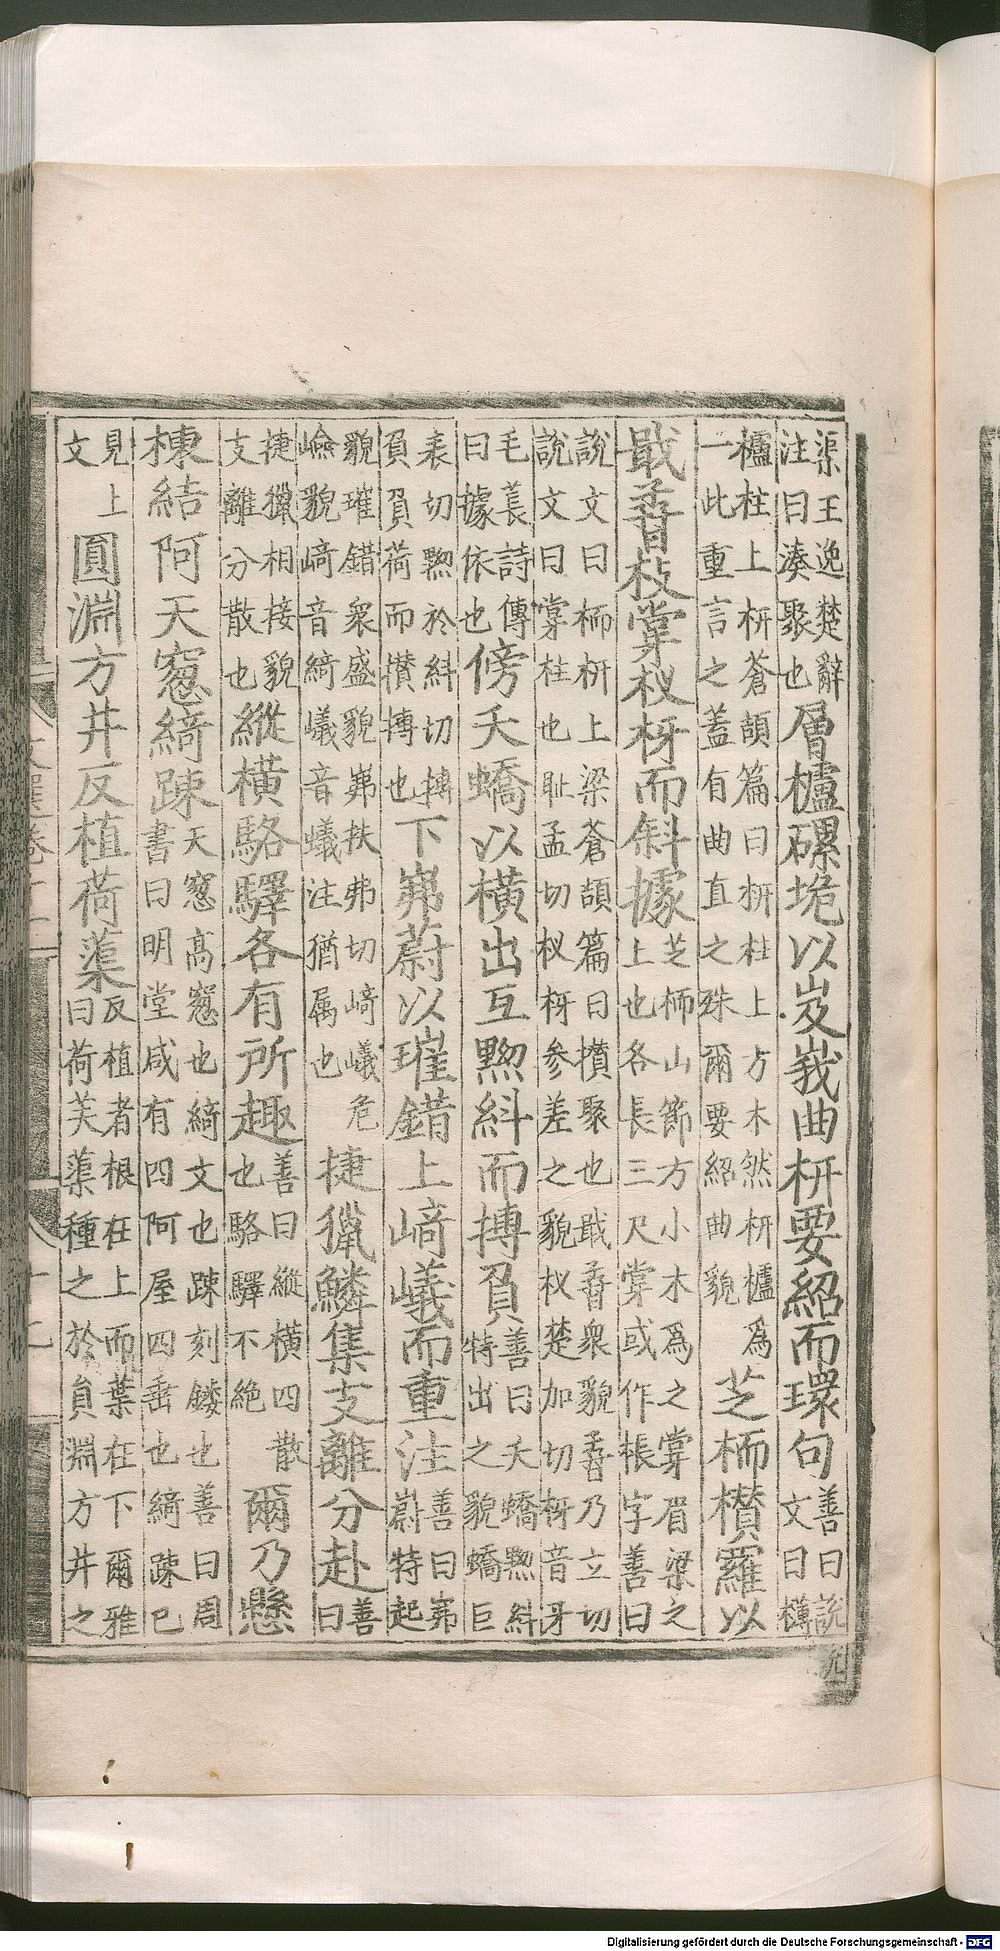 渠王逸楚辭
注曰湊聚也
層櫨磥垝以岌峩曲枅要紹而環句
善曰說
文曰欂
櫨柱上枅蒼頡篇曰枅柱上方木然枅櫨爲
一此重言之蓋有曲直之殊爾要紹曲貌
芝栭欑羅以
戢孴枝掌杈枒而斜據
芝栭山節方小木爲之掌眉梁之
上也各長三尺掌或作棖字善曰
說文曰栭枅上梁蒼頡篇曰攢聚也戢孴衆貌孴乃立切
說文曰掌柱也耻孟切杈枒參差之貌杈楚加切枒音牙
毛萇詩傳
曰據依也
傍夭蟜以橫出互黝糾而搏負
善曰夭蟜黝糾
特出之貌蟜巨
表切黝於糾切搏
負負荷而攢搏也
下岪蔚以璀錯上崎嶬而重注
善曰岪
蔚特起
貌璀錯衆盛貌岪扶弗切崎嶬危
嶮貌崎音綺嶬音蟻注猶属也
捷獵鱗集支離分赴
善
曰
捷獵相接貌
支離分散也
縱橫駱驛各有所趣
善曰縱橫四散
也駱驛不絶
爾乃懸
棟結阿天窻綺踈
天窻高窻也綺文也踈刻鏤也善曰周
書曰明堂咸有四阿屋四垂也綺踈已
見上
文
圓淵方井反植荷蕖
反植者根在上而葉在下爾雅
曰荷芙蕖種之於員淵方井之
Digitalisierung gefördert durch die Deutsche Forschungsgemeinschaft - DFG